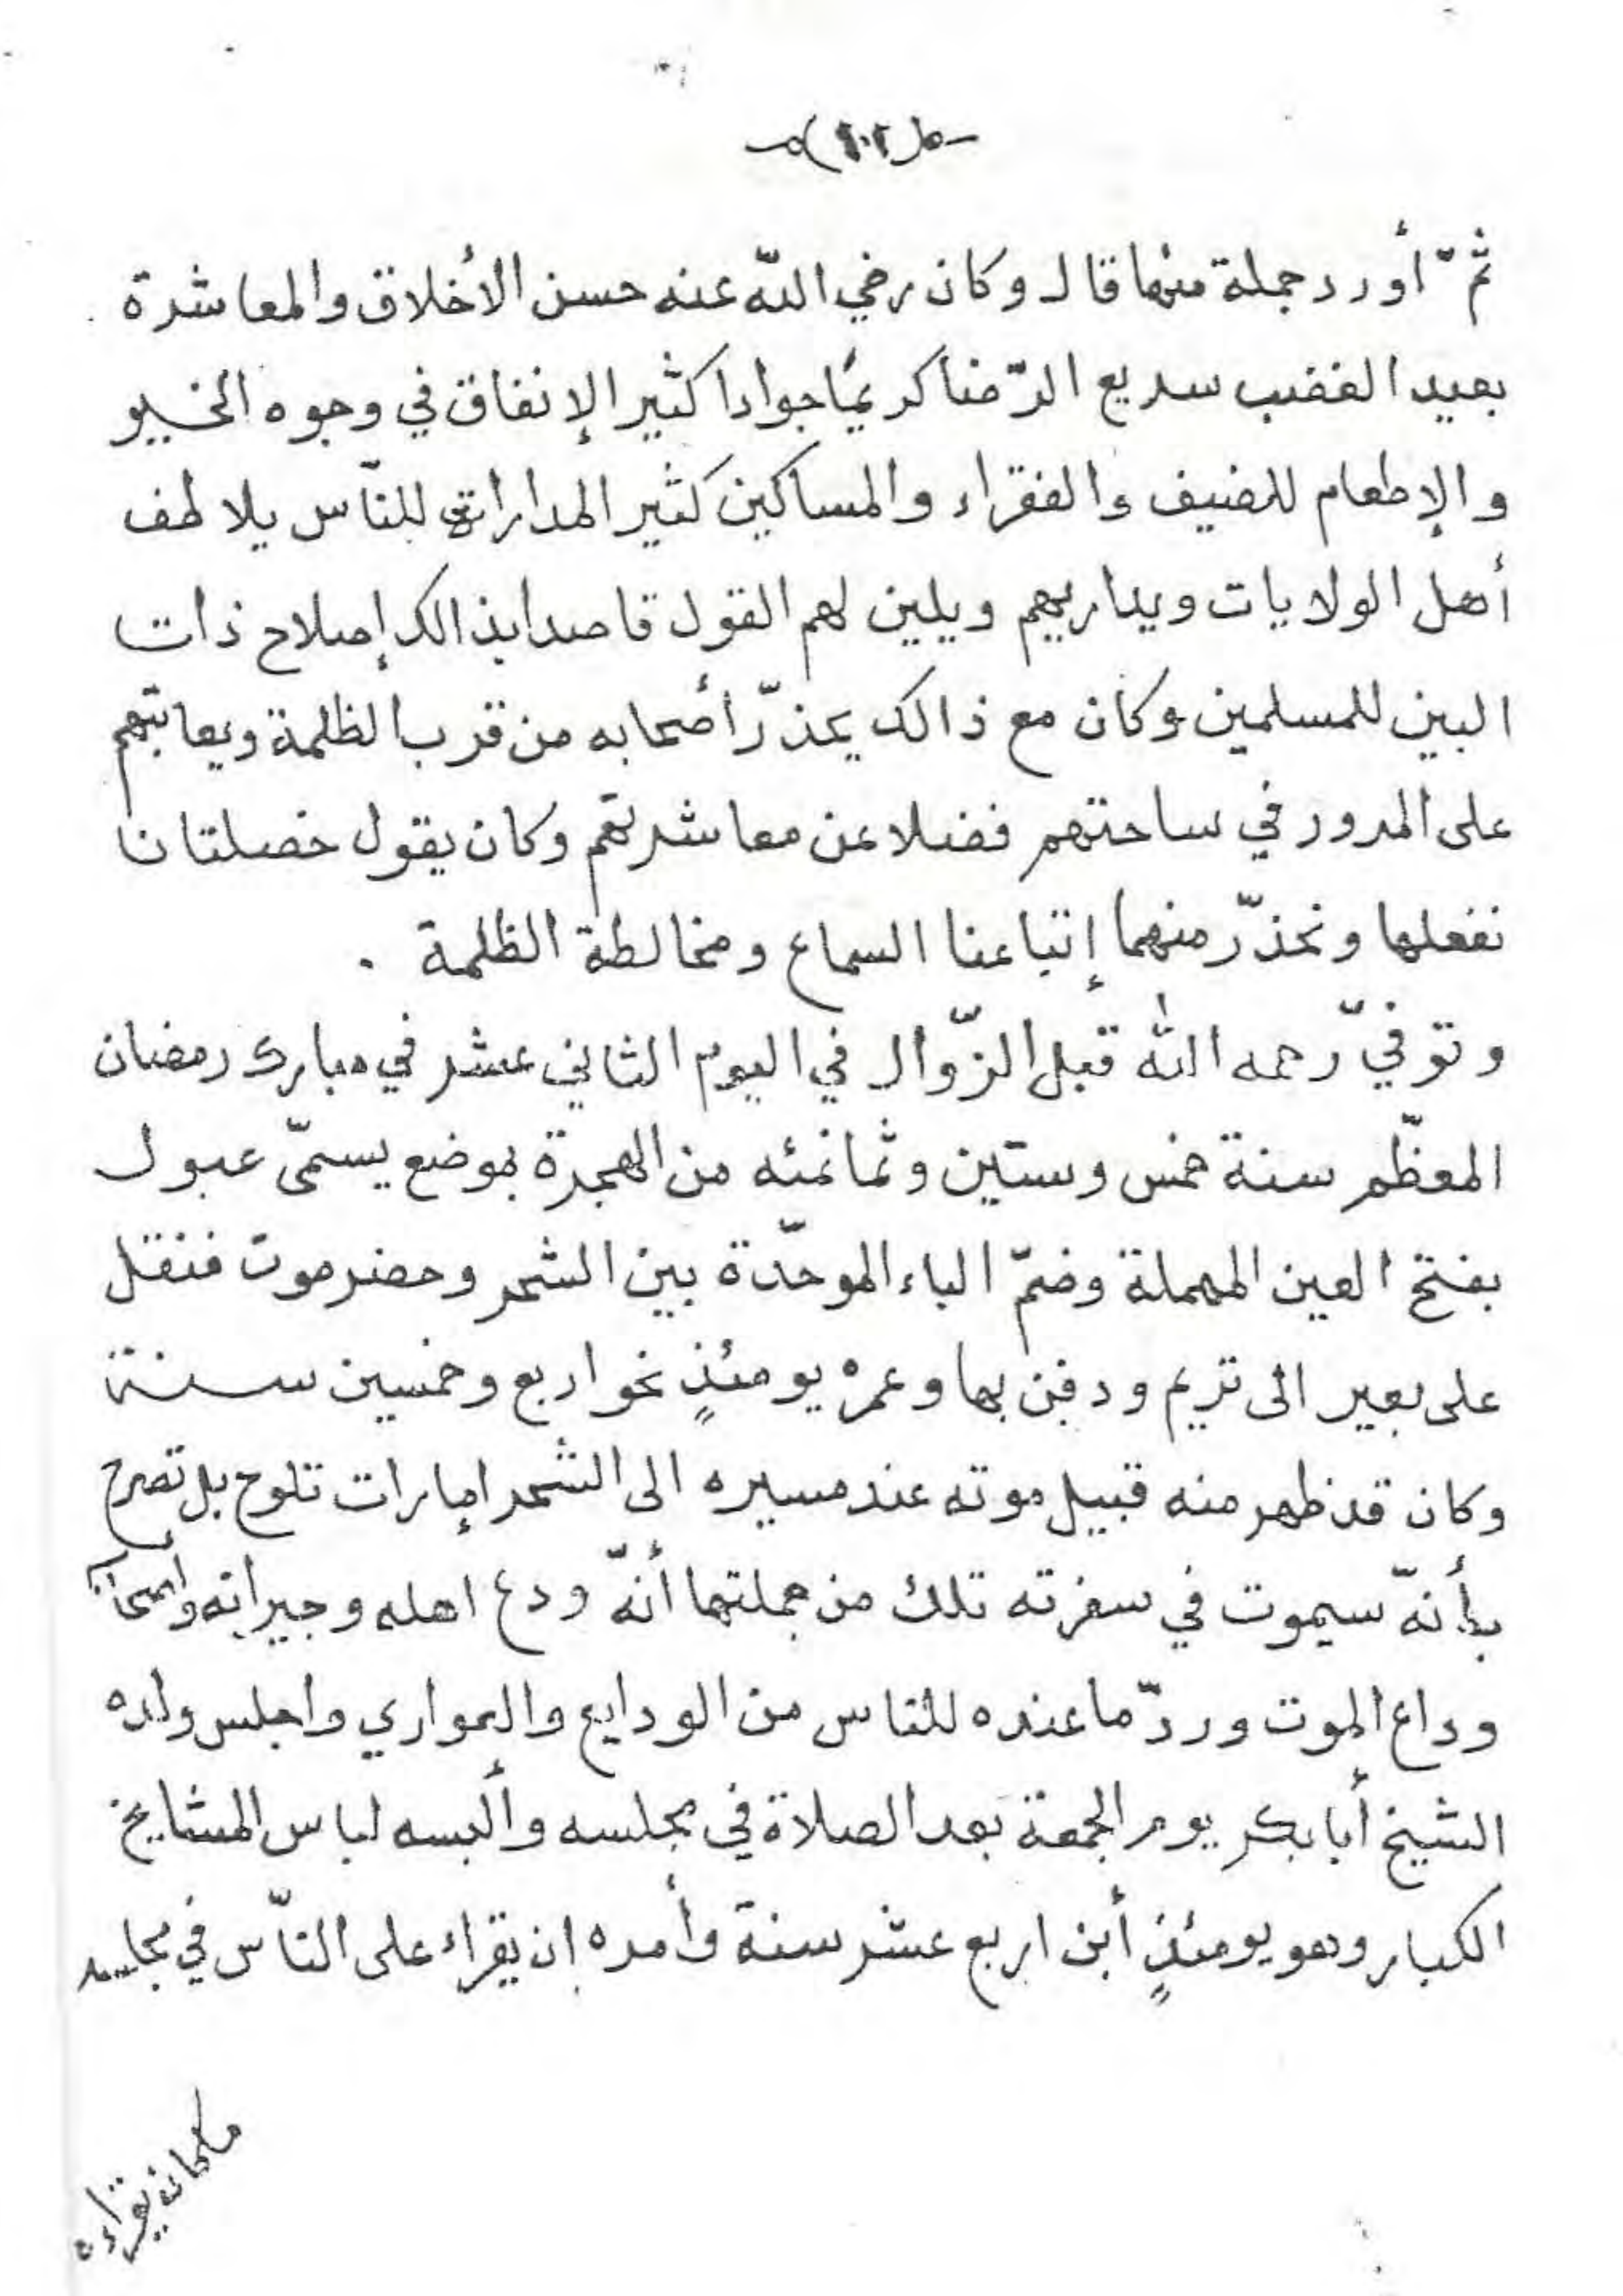 ثمّ أورد جملة منها قال وكان رضي اللّه عنه حسن الأخلاق والمعاشرة
بعيد الغضب سريع الرّضا كريمًا جوادا كثير الإنفاق في وجوه الخير
والإطعام للضيف والفقراء والمساكين كثير المدارات للنّاس يلاطف
أهل الولايات ويداريهم ويلين لهم القول قاصدا بذالك إصلاح ذات
البين للمسلمين وكان مع ذالك يحذّر أصحابه من قرب الظلمة ويعاتبهم
على المرور في ساحتهم فضلا عن معاشرتهم وكان يقول خصلتان
نفعلها ونحذّر منهما إتباعنا السماع ومخالطة الظلمة .
وتوفيّ رحمه الله قبل الزّوال في اليوم الثاني عشر في مبارك رمضان
المعظّم سنة خمس وستين وثمانمئه من الهجرة بموضع يسمّى عبول
بفتح العين المهملة وضمّ الباء الموحّدة بين الشحر وحضرموت فنقل
على بعير الى تريم ودفن بها وعمره يومئذٍ نحو اربع وخمسين سنة
وكان قد ظهر منه قبيل موته عند مسيره الى الشحر إمارات تلوح بل تصرح
بأنّه سيموت في سفرته تلك من جملتها أنّه ودع اهله وجيرانه وأصحابه
وداع الموت وردّ ما عنده للناس من الودايع والعواري واجلس ولده
الشيخ أبا بكر يوم الجمعة بعد الصلاة في مجلسه وألبسه لباس المشايخ
الكبار وهو يومئذٍ أبن اربع عشر سنة وأمره ان يقراء على النّاس في مجلسه
ما كان يقراءه